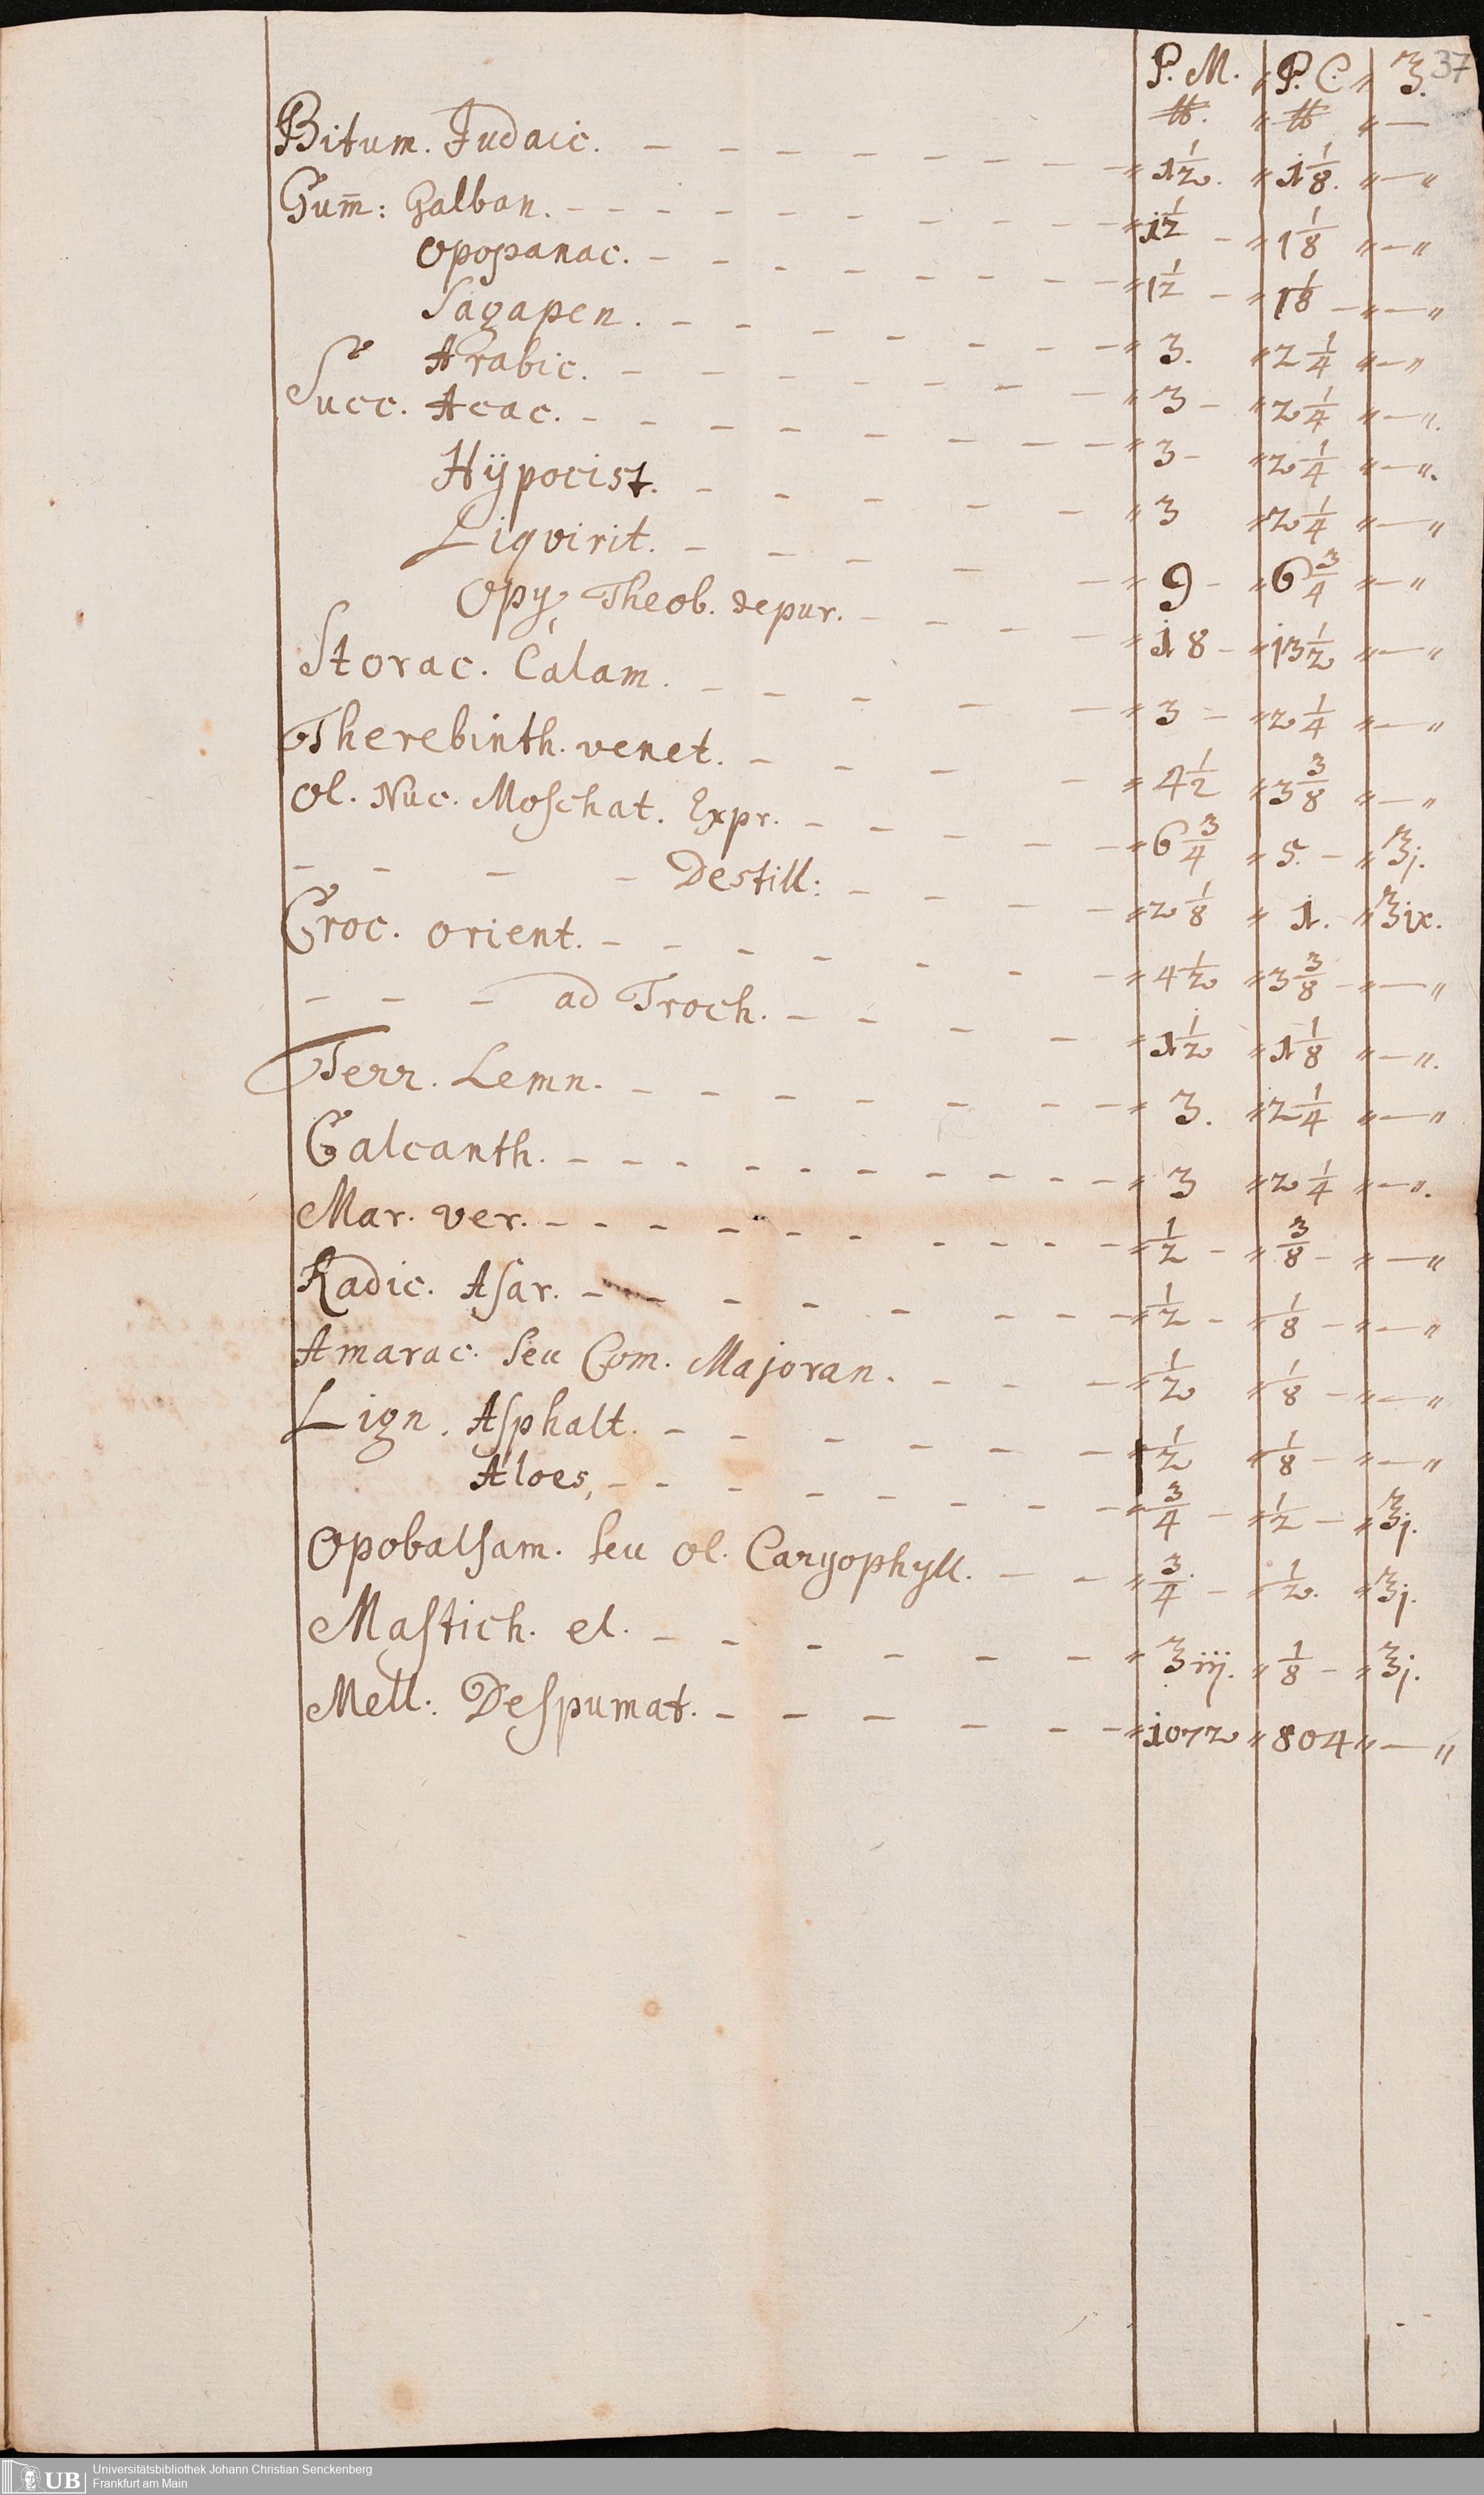 37
P. M. " P. C. " ℥.
℔. " ℔ " —
Bitum. Judaic. — " 1 1/2. " 1 1/8. " — "
Gum̅: Galban. — " 1 1/2 — " 1 1/8 " — "
Opopanac. — " 1 1/2 — " 1 1/8 — " — "
Sagapen. — " 3. " 2 1/4 " — "
Arabic. — " 3 — " 2 1/4 " — ".
Succ. Acac. — " 3 — " 2 1/4 " — ".
Hÿpocist. — " 3 " 2 1/4 " — "
Liqvirit. — " 9 — " 6 3/4 " — "
Opy, Theob. depur. — " 18 — " 13 1/2 " — "
Storac. Calam. — " 3 — " 2 1/4 " — "
Therebinth. venet. — " 4 1/2 " 3 3/8 " — "
Ol. Nuc. Moschat. Expr. — " 6 3/4 " 5. — " ℥j.
— — — — Destill: — " 2 1/8 " 1. " ℥ix.
Croc. orient. — " 4 1/2 " 3 3/8 — " — "
— — — ad Troch. — " 1 1/2 " 1 1/8 " — ".
Terr. Lemn. — " 3. " 2 1/4 " — "
Calcanth. — " 3 " 2 1/4 " — ".
Mar. ver. — " 1/2 — " 3/8 — " — "
Radic. Asar. — " 1/2 — " 1/8 — " — "
Amarac. seu Com. Majoran. — " 1/2 " 1/8 — " — "
Lign. Asphalt. — " 1/2 " 1/8 — " — "
Aloes, — " 3/4 — " 1/2 — " ℥j.
Opobalsam. seu ol. Caryophyll. — " 3/4 — " 1/2. " ℥j.
Mastich. el. — " ℥iij. " 1/8 — " ℥j.
Mell: Despumat. — " 1072 " 804 " — "
UB Universitätsbibliothek Johann Christian Senckenberg
Frankfurt am Main